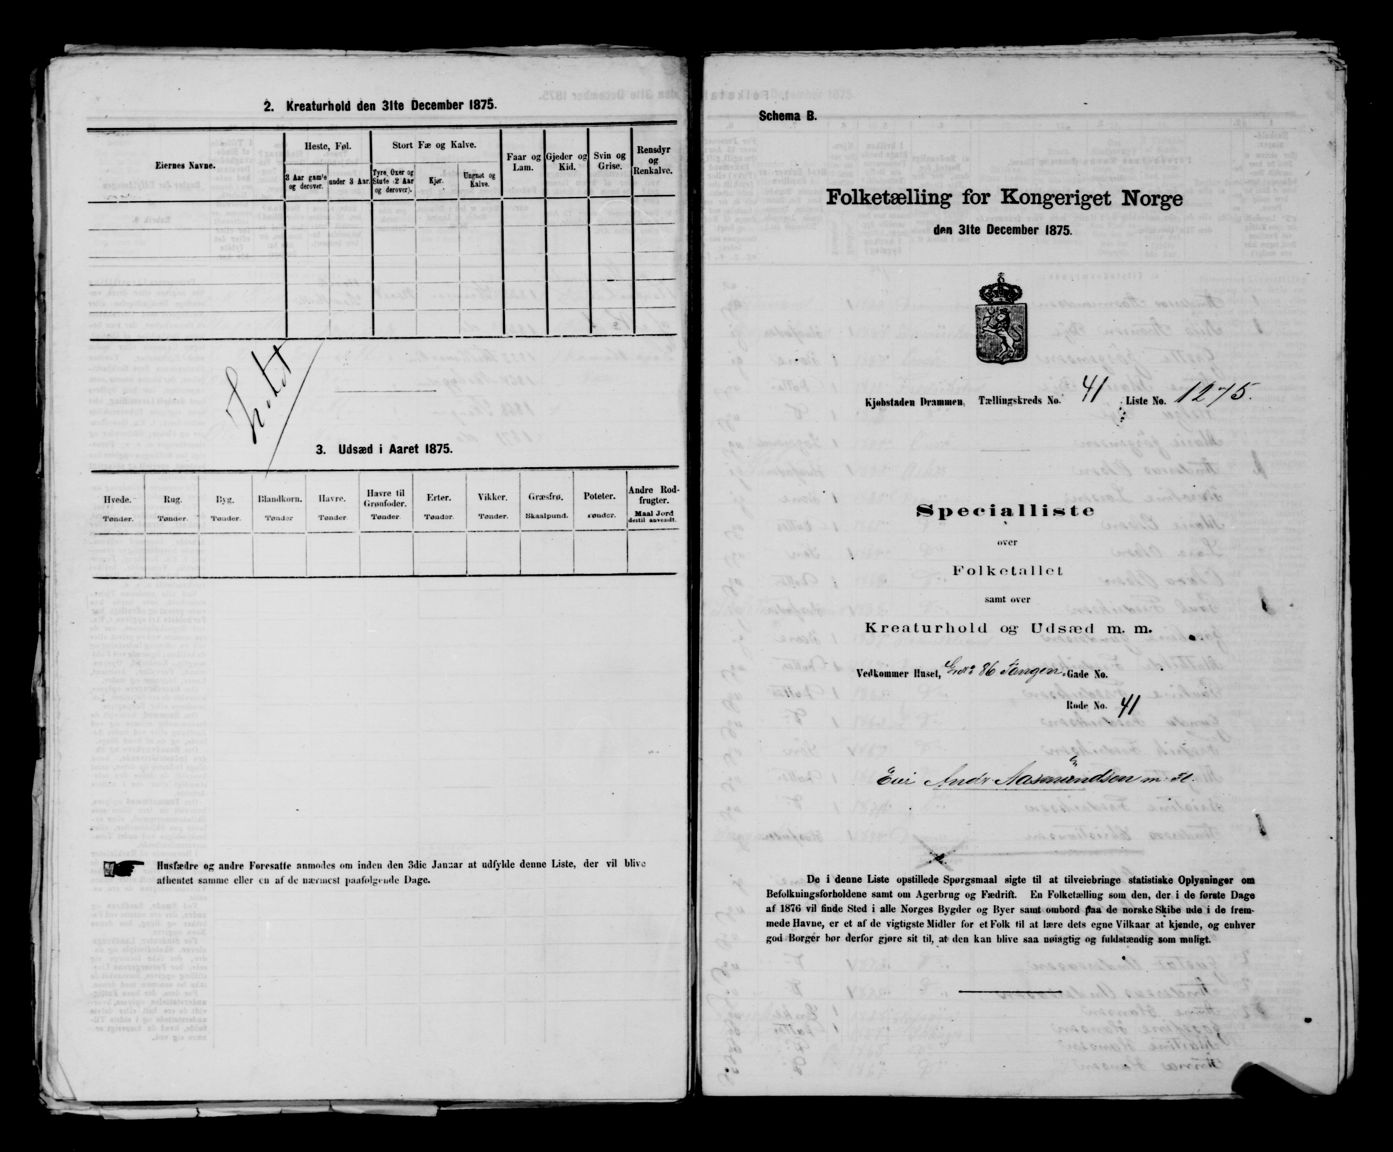 2. Kreaturhold den 31te December 1875.
Eiernes Navne.
Heste, Føl.
Stort Fæ og Kalve.
Faar og Lam.
Gjeder og Kid.
Svin og Grise.
Rensdyr og Renkalve.
3 Aar gam'e og derover.
under 3 Aar.
Tyre, Oxer og Stute (2 Aar og derover).
Kjør.
Ungnøt og Kalve.
3. Udsæd i Aaret 1875.
Hvede.
Rug.
Byg.
Blandkorn.
Havre.
Havre til Grønfoder.
Erter.
Vikker.
Græsfrø.
Poteter.
Andre Rodfrugter.
Tønder.
Tønder.
Tønder.
Tønder
Tønder.
Tønder.
Tønder.
Tønder.
Skaalpund.
Tønder.
Maal Jord dertil anvendt.
Husfædre og andre Foresatte anmodes om inden den 3die Januar at udfylde denne Liste, der vil blive
afhentet samme eller en af de nærmest paafølgende Dage.
Schema B.
Folketælling for Kongeriget Norge
den 31te December 1875.
Kjøbstaden Drammen, Tællingskreds No. 41 Liste No. 1275.
Specialliste
over
Folketallet
samt over
Kreaturhold og Udsæd m. m.
Vedkommer Huset, 86 Tangen Gade No.
Rode No. 41
Eier Andr Aasmundsen m. fl.
De i denne Liste opstillede Spørgsmaal sigte til at tilveiebringe statistiske Oplysninger om
Befolkningsforholdene samt om Agerbrug og Fædrift. En Folketælling som den, der i de første Dage
af 1876 vil finde Sted i alle Norges Bygder og Byer samt ombord paa de norske Skibe ude i de frem-
mede Havne, er et af de vigtigste Midler for et Folk til at lære dets egne Vilkaar at kjende, og enhver
god Borger bør derfor gjøre sit til, at den kan blive saa nøiagtig og fuldstændig som muligt.